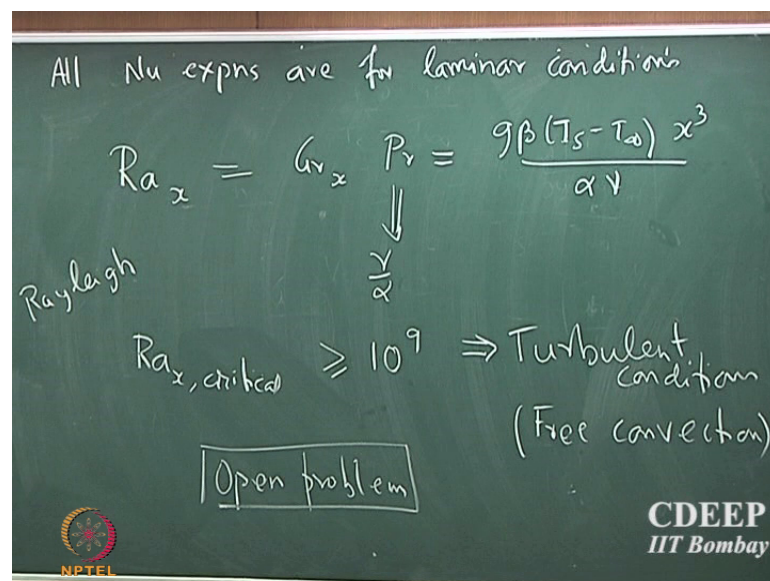 All Nu expns are for laminar conditions
Ra_x = Gr_x Pr = gβ(T_s - T_∞) x³ / αν
⇓
ν/α
Rayleigh
Ra_x,critical ≥ 10⁹ ⇒ Turbulent conditions
(Free convection)
Open problem
CDEEP
IIT Bombay
NPTEL